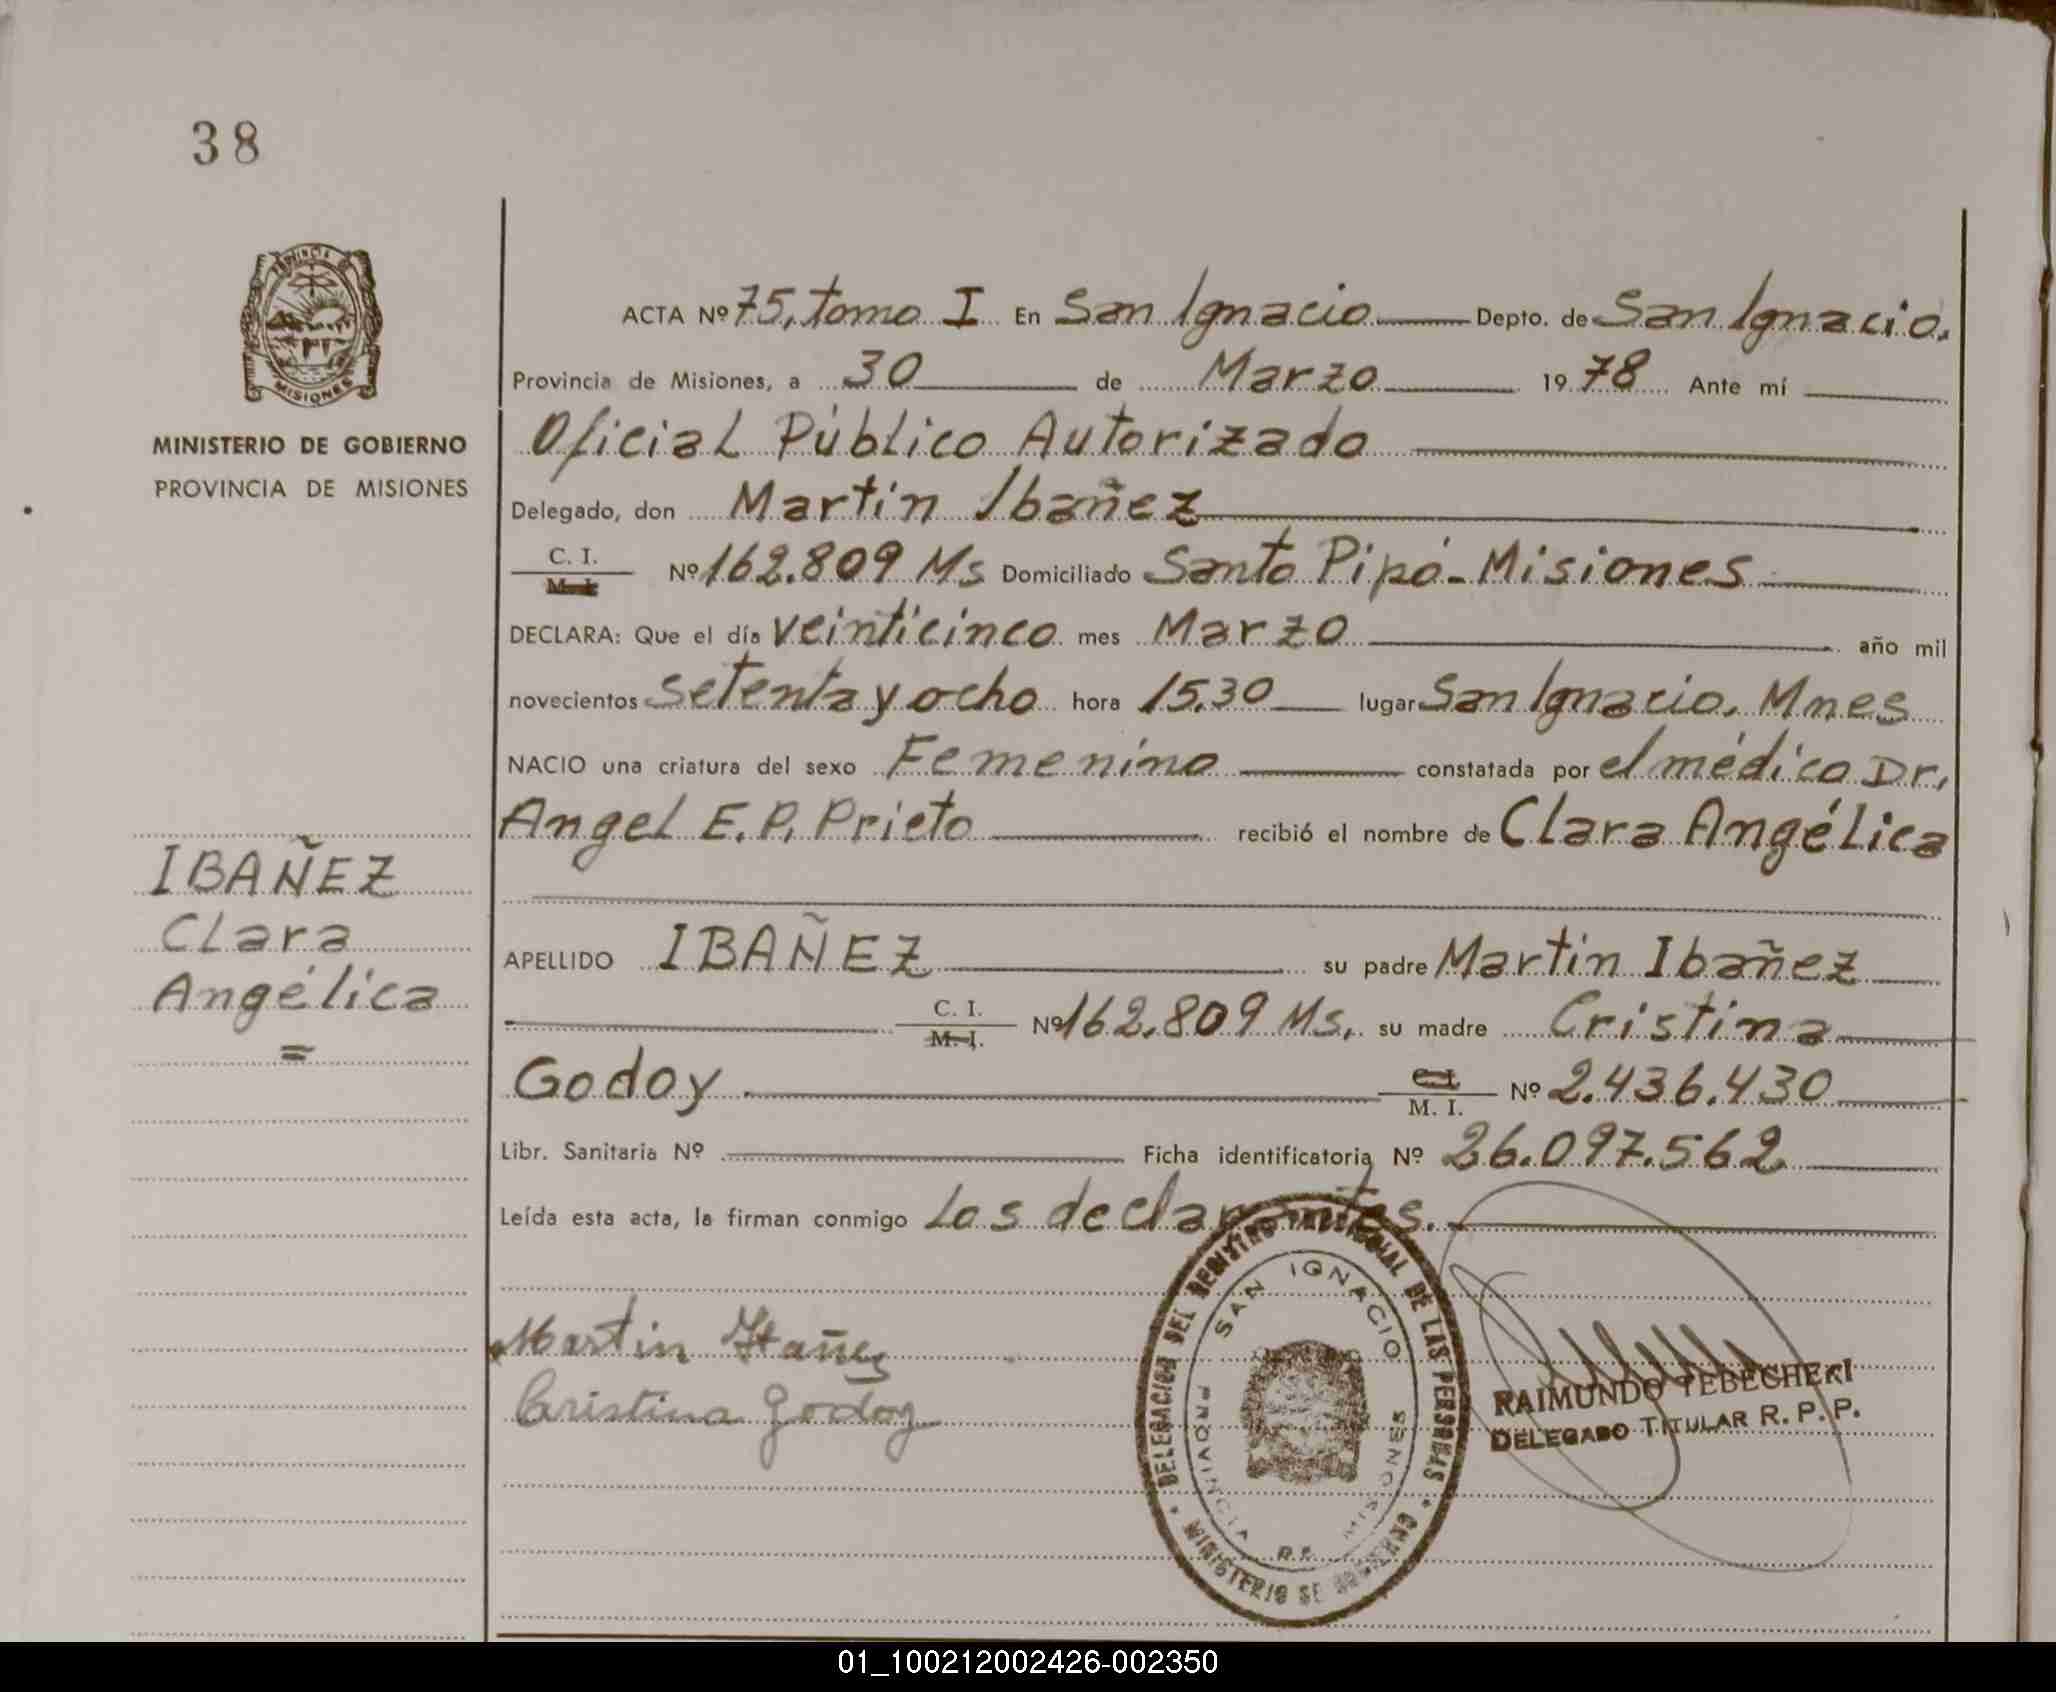 38
PROVINCIA DE
MISIONES
MINISTERIO DE GOBIERNO
PROVINCIA DE MISIONES
IBAÑEZ
Clara
Angélica
=
ACTA Nº 75, tomo I En San Ignacio Depto. de San Ignacio.
Provincia de Misiones, a 30 de Marzo 1978 Ante mí
Oficial Público Autorizado
Delegado, don Martin Ibañez
C. I.
M. I. Nº 162.809 Ms Domiciliado Santo Pipó - Misiones
DECLARA: Que el día veinticinco mes Marzo año mil
novecientos setenta y ocho hora 15,30 lugar San Ignacio, Mnes
NACIO una criatura del sexo Femenino constatada por el médico Dr.
Angel E. P. Prieto recibió el nombre de Clara Angélica
APELLIDO IBAÑEZ su padre Martin Ibañez
C. I.
M. I. Nº 162.809 Ms, su madre Cristina
Godoy C. I.
M. I. Nº 2.436.430
Libr. Sanitaria Nº Ficha identificatoria Nº 26.097.562
Leída esta acta, la firman conmigo los declarantes.
Martin Ibañez
Cristina Godoy
DELEGACION DEL REGISTRO PROVINCIAL DE LAS PERSONAS
MINISTERIO DE GOBIERNO
SAN IGNACIO
PROVINCIA DE MISIONES
RAIMUNDO TEBECHERI
DELEGADO TITULAR R. P. P.
01_100212002426-002350